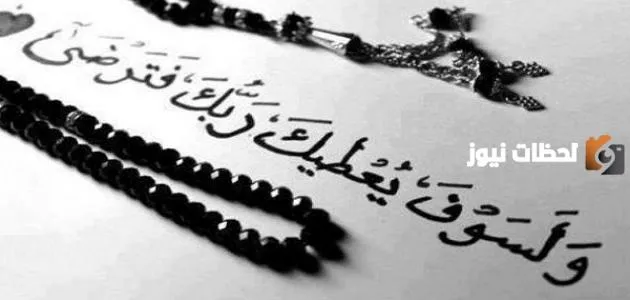 وَلَسَوْفَ يُعْطِيكَ رَبُّكَ فَتَرْضَىٰ
لحظات نيوز